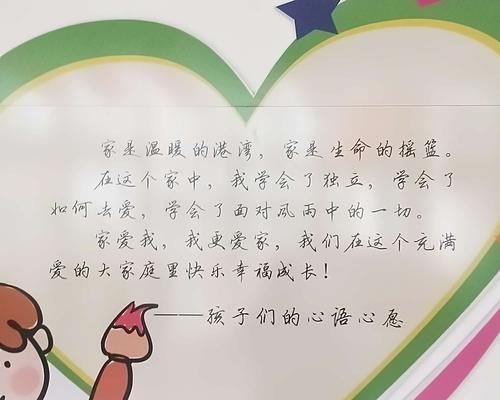 家是温暖的港湾，家是生命的摇篮。
在这个家中，我学会了独立，学会了
如何去爱，学会了面对风雨中的一切。
家爱我，我更爱家，我们在这个充满
爱的大家庭里快乐幸福成长！
——孩子们的心语心愿